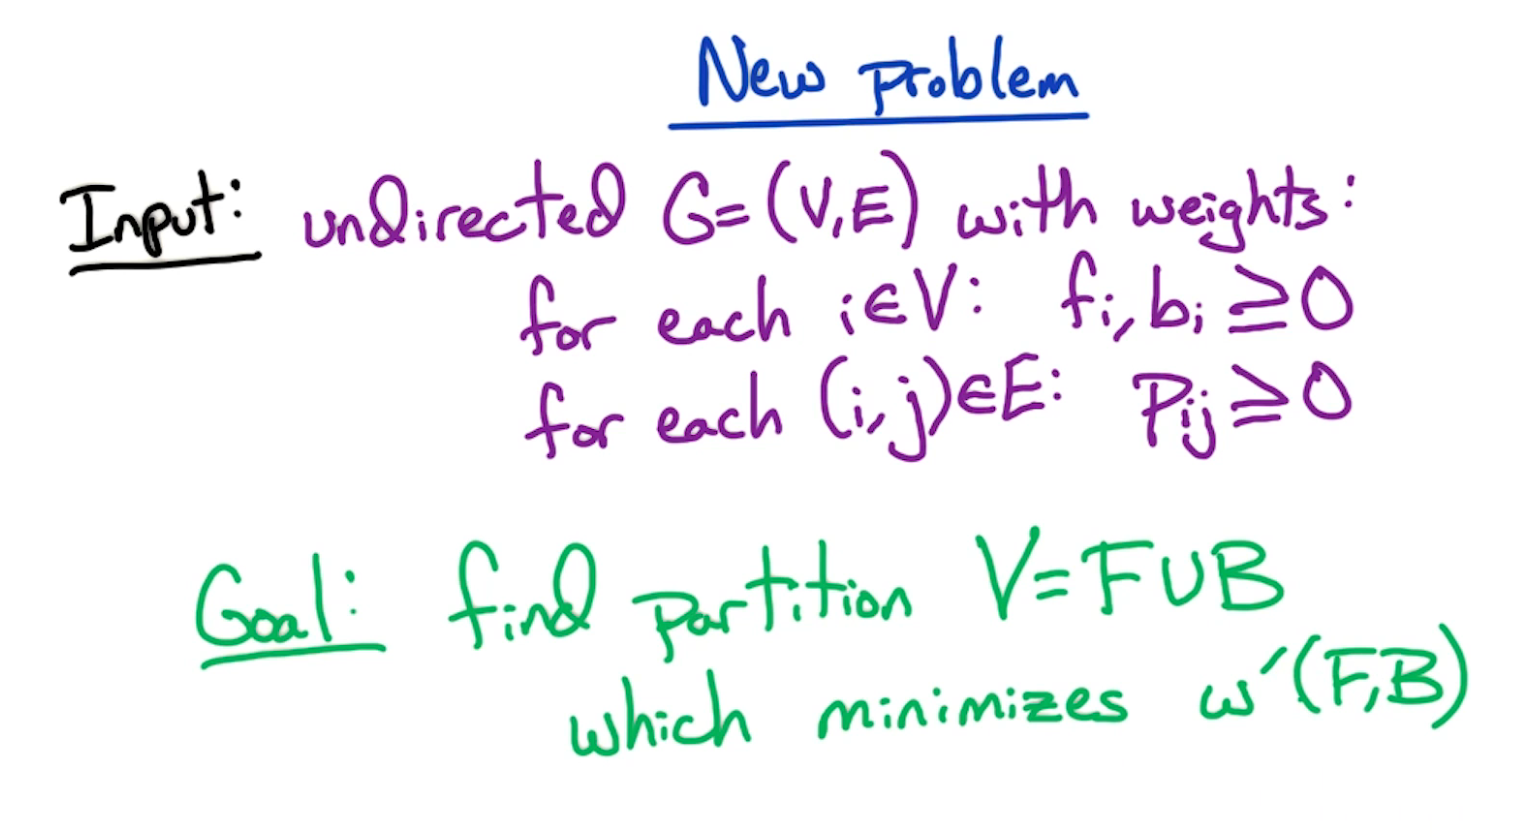 New problem
Input: undirected G=(V,E) with weights:
for each i∈V: fᵢ, bᵢ ≥0
for each (i,j)∈E: Pᵢⱼ≥0
Goal: find partition V=F∪B
which minimizes w′(F,B)